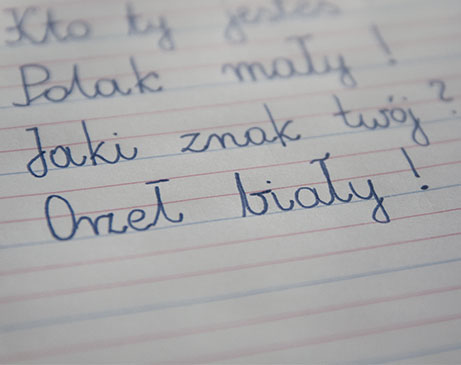 Kto ty jesteś
Polak mały!
Jaki znak twój?
Orzeł biały!